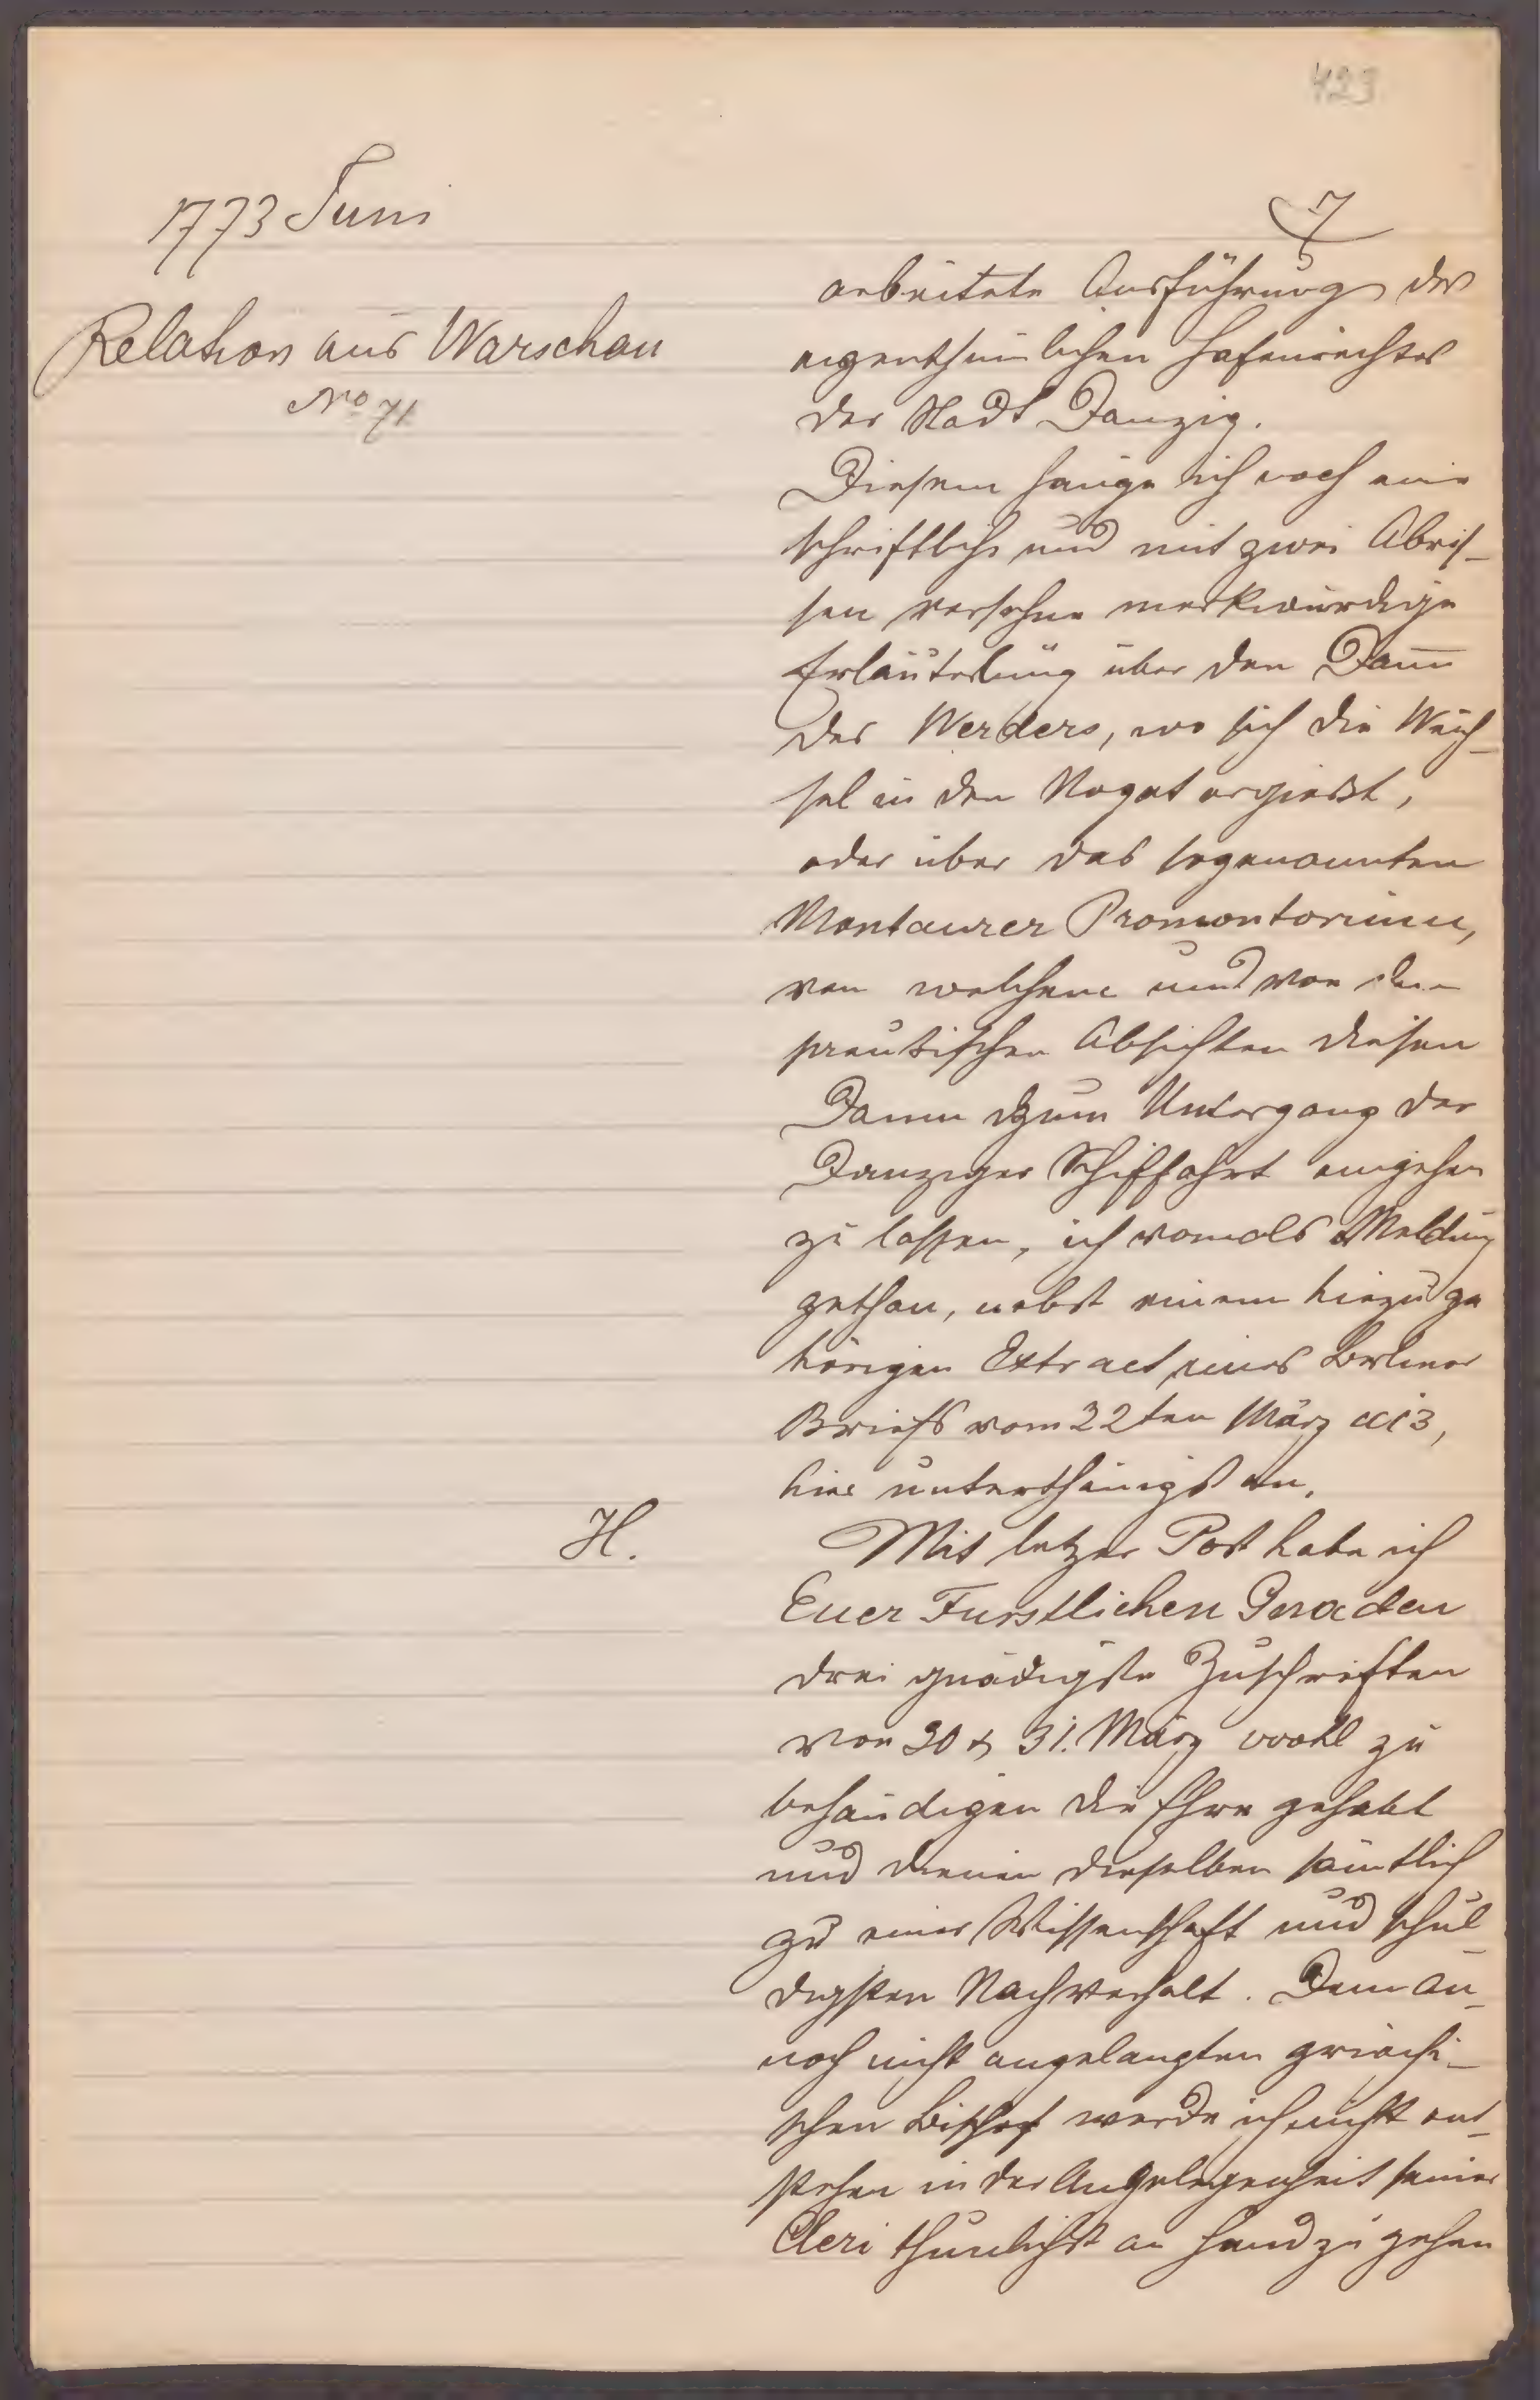 423
1773 Juni
7
Relation aus Warschau
No 71
arbeitete Ausführung des
eigenthümlichen Hafenrechtes
der Stadt Danzig.
Diesem hänge ich noch eine
schriftliche und mit zwei Abris-
sen versehne merkwürdige
Erläuterung über den Damm
des Werders, wo sich die Weich-
sel in den Nogat ergießt,
oder über das sogenannten
Montaurer Promontorium,
von welchem und von den
preußischen Absichten diesen
Damm zum Untergang der
Danziger Schiffahrt eingehen
zu lassen, ich vomals Meldung
gethan, nebst einem hiezu ge
hörigen Extract eines Berliner
Briefs vom 22ten März
hier unterthänigst an.
H.
Mit letzer Post habe ich
Euer Furstlichen Gnaden
drei gnädigste Zuschriften
von 30 & 31. März wohl zu
behändigen die Ehre gehabt
und dienen dieselben sämtlich
zu einer Wissenschaft und schul-
digsten Nachverhalt. Dem an-
noch nicht angelangten griechi-
schen Bischof werde ich nicht ent-
stehen in der Angelegenheit seines
Cleri thunlichst an Hand zu gehen